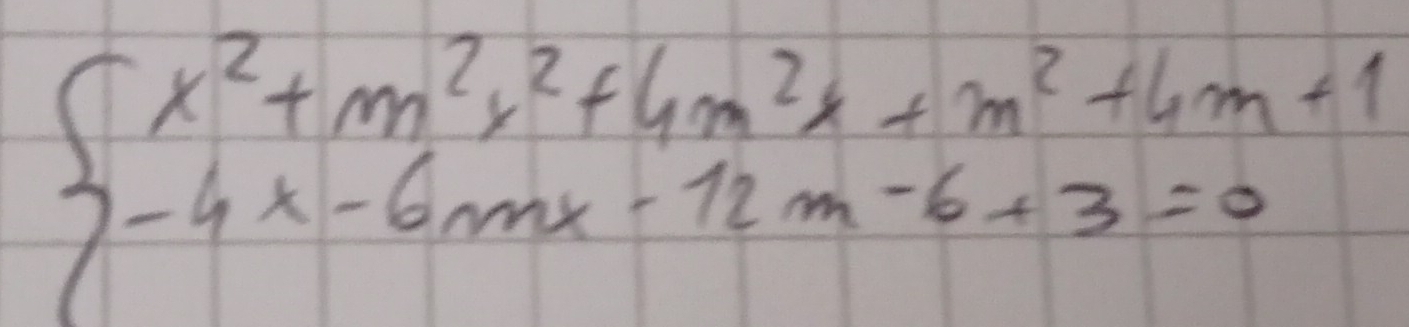 { x² + m²x² + 4m²x + m² + 4m + 1
- 4x - 6mx - 12m - 6 + 3 = 0